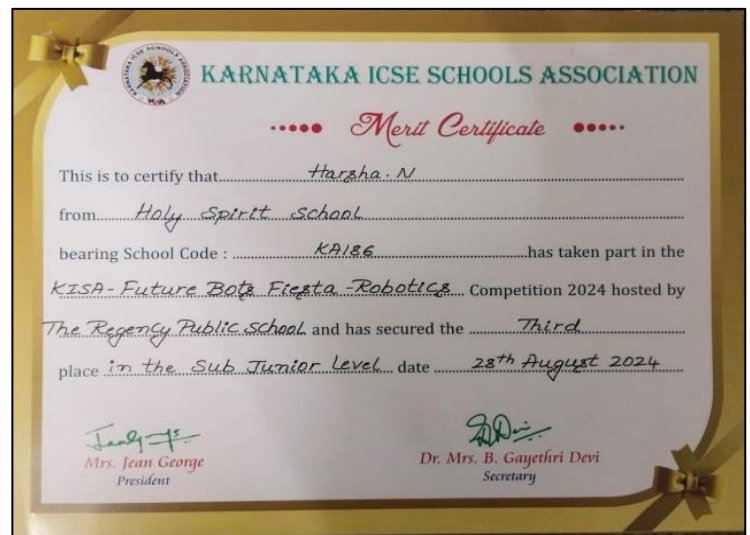 KARNATAKA ICSE SCHOOLS ASSOCIATION
Merit Certificate
This is to certify that Harsha. N
from Holy Spirit School
bearing School Code : KA186 has taken part in the
KISA - Future Bots Fiesta - Robotics Competition 2024 hosted by
The Regency Public School and has secured the Third
place in the Sub Junior Level date 28th August 2024
Mrs. Jean George
President
Dr. Mrs. B. Gayethri Devi
Secretary